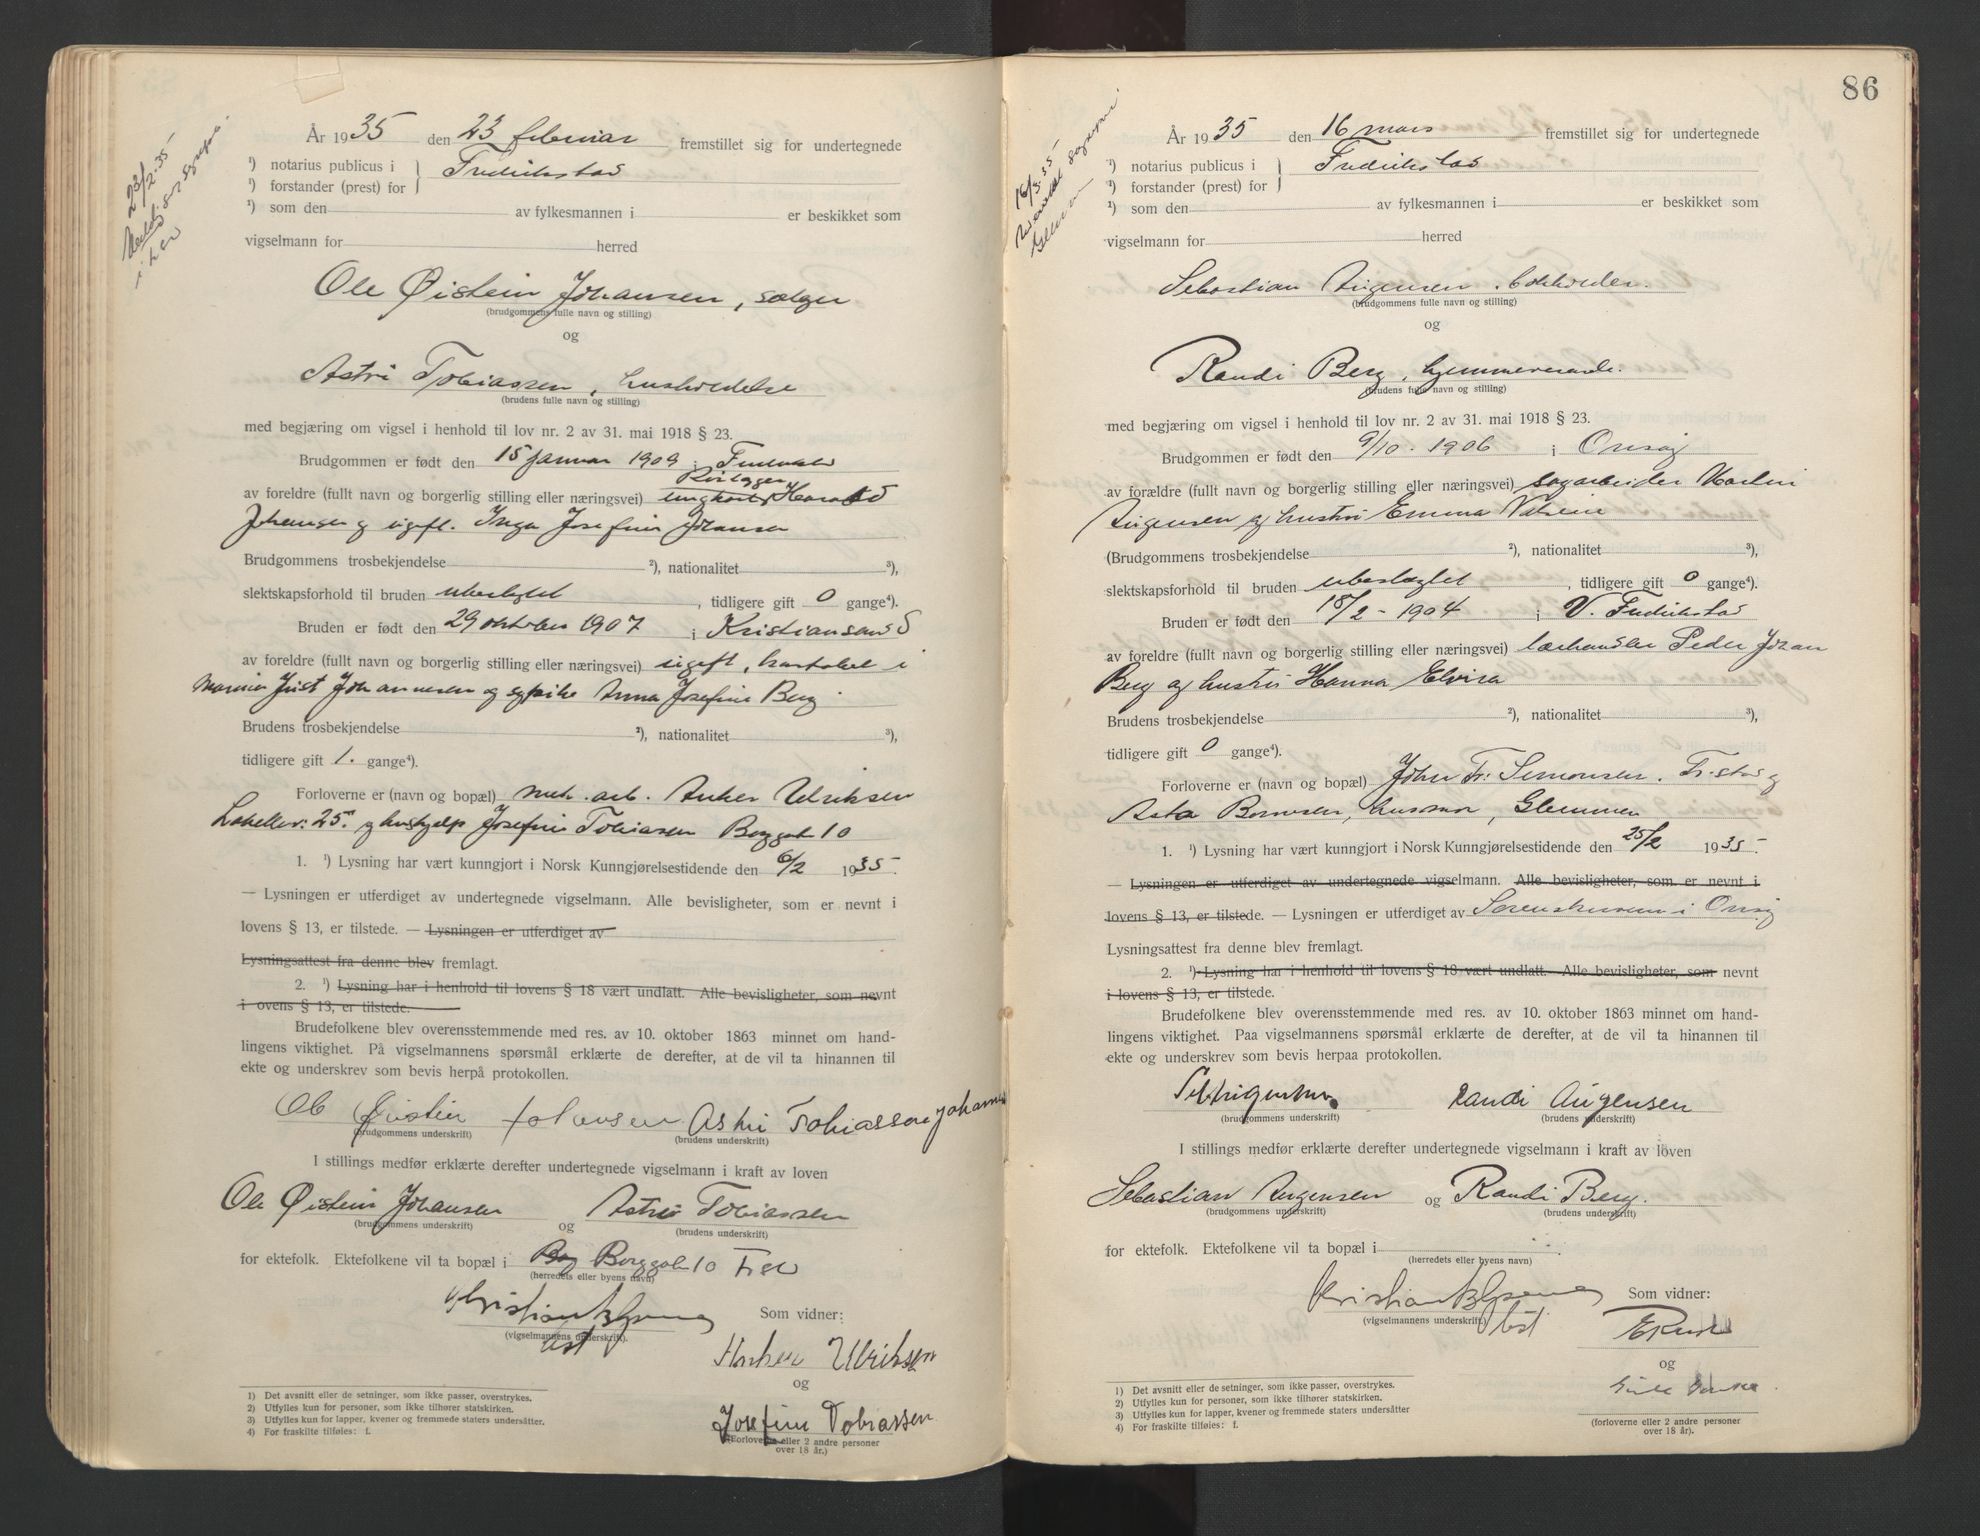 23/2.35
År 1935 den 23 februar fremstillet sig for undertegnede
¹) notarius publicus i } Fredrikstad
¹) forstander (prest) for
¹) som den av fylkesmannen i er beskikket som
vigselmann for herred
Ole Øistein Johansen, selger
(brudgommens fulle navn og stilling)
og
Astri Tobiassen, husholderske
(brudens fulle navn og stilling)
med begjæring om vigsel i henhold til lov nr. 2 av 31. mai 1918 § 23.
Brudgommen er født den 15 januar 1909 i
av foreldre (fullt navn og borgerlig stilling eller næringsvei) ungkar Harald
Johansen og ugift. Inga Josefine Johansen
Brudgommens trosbekjendelse ²), nationalitet ³),
slektskapsforhold til bruden ubeslegtet, tidligere gift 0 gange⁴).
Bruden er født den 29 oktober 1907 i Kristiansand S
av foreldre (fullt navn og borgerlig stilling eller næringsvei) ugift, i
Just Johannesen og sypike Anna Josefine Berg
Brudens trosbekjendelse ²), nationalitet ³),
tidligere gift 1. gange⁴).
Forloverne er (navn og bopæl) mek. arb. Anker Ulriksen
25. og hushjelp Josefine Tobiassen Borggat 10
1. ¹) Lysning har vært kunngjort i Norsk Kunngjørelsestidende den 6/2 1935.
— Lysningen er utferdiget av undertegnede vigselmann. Alle bevisligheter, som er nevnt i
lovens § 13, er tilstede. — Lysningen er utferdiget av
Lysningsattest fra denne blev fremlagt.
2. ¹) Lysning har i henhold til lovens § 18 vært undlatt. Alle bevisligheter, som nevnt
i ovens § 13, er tilstede.
Brudefolkene blev overensstemmende med res. av 10. oktober 1863 minnet om hand-
lingens viktighet. På vigselmannens spørsmål erklærte de derefter, at de vil ta hinannen til
ekte og underskrev som bevis herpå protokollen.
Ole Øistein Johansen Astri Tobiassen Johansen
(brudgommens underskrift) (brudens underskrift)
I stillings medfør erklærte derefter undertegnede vigselmann i kraft av loven
Ole Øistein Johansen og Astri Tobiassen
(brudgommens underskrift) (brudens underskrift)
for ektefolk. Ektefolkene vil ta bopæl i Borggat 10
(herredets eller byens navn)
Som vidner:
(vigselmannens underskrift).
Anker Ulriksen
og
Josefine Tobiassen
(Forloverne eller 2 andre personer
over 18 år.)
1) Det avsnitt eller de setninger, som ikke passer, overstrykes.
2) Utfylles kun for personer, som ikke tilhører statskirken.
3) Utfylles kun for lapper, kvener og fremmede staters undersåtter.
4) For fraskilte tilføies: f.
86
16/3.35
År 1935 den 16 mars fremstillet sig for undertegnede
¹) notarius publicus i } Fredrikstad
¹) forstander (prest) for
¹) som den av fylkesmannen i er beskikket som
vigselmann for herred
Sebastian Augensen, bokholder.
(brudgommens fulle navn og stilling)
og
Randi Berg, hjemmeværende.
(brudens fulle navn og stilling)
med begjæring om vigsel i henhold til lov nr. 2 av 31. mai 1918 § 23.
Brudgommen er født den 9/10 - 1906 i Onsøy
av forældre (fullt navn og borgerlig stilling eller næringsvei) sagarbeider Martin
Augensen og hustru Emma
(Brudgommens trosbekjendelse ²), nationalitet ³),
slektskapsforhold til bruden ubeslægtet, tidligere gift 0 gange⁴).
Bruden er født den 18/2 - 1904 i V. Fredrikstad
av foreldre (fullt navn og borgerlig stilling eller næringsvei) lærhandler Peder Johan
Berg og hustru Hanna Elvira
Brudens trosbekjendelse ²), nationalitet ³),
tidligere gift 0 gange⁴).
Forloverne er (navn og bopæl) John Fr. Simonsen. Fr.stad og
Asta, husmor, Glemmen
1. ¹) Lysning har vært kunngjort i Norsk Kunngjørelsestidende den 25/2 1935.
— Lysningen er utferdiget av undertegnede vigselmann. Alle bevisligheter, som er nevnt i
lovens § 13, er tilstede. — Lysningen er utferdiget av Sorenskriveren i Onsøy
Lysningsattest fra denne blev fremlagt.
2. ¹) Lysning har i henhold til lovens § 18 vært undlatt. Alle bevisligheter, som nevnt
i lovens § 13, er tilstede.
Brudefolkene blev overensstemmende med res. av 10. oktober 1863 minnet om hand-
lingens viktighet. Paa vigselmannens spørsmål erklærte de derefter, at de vil ta hinannen til
ekte og underskrev som bevis herpaa protokollen.
Randi Augensen
(brudgommens underskrift) (brudens underskrift)
I stillings medfør erklærte derefter undertegnede vigselmann i kraft av loven
Sebastian Augensen og Randi Berg.
(brudgommens underskrift) (brudens underskrift)
for ektefolk. Ektefolkene vil ta bopæl i
(herredets eller byens navn)
Som vidner:
(vigselmannens underskrift)
og
(forloverne eller 2 andre personer
over 18 år).
1) Det avsnitt eller de setninger, som ikke passer, overstrykes.
2) Utfylles kun for personer, som ikke tilhører statskirken.
3) Utfylles kun for lapper, kvener og fremmede staters undersåtter
4) For fraskilte tilføies: f.